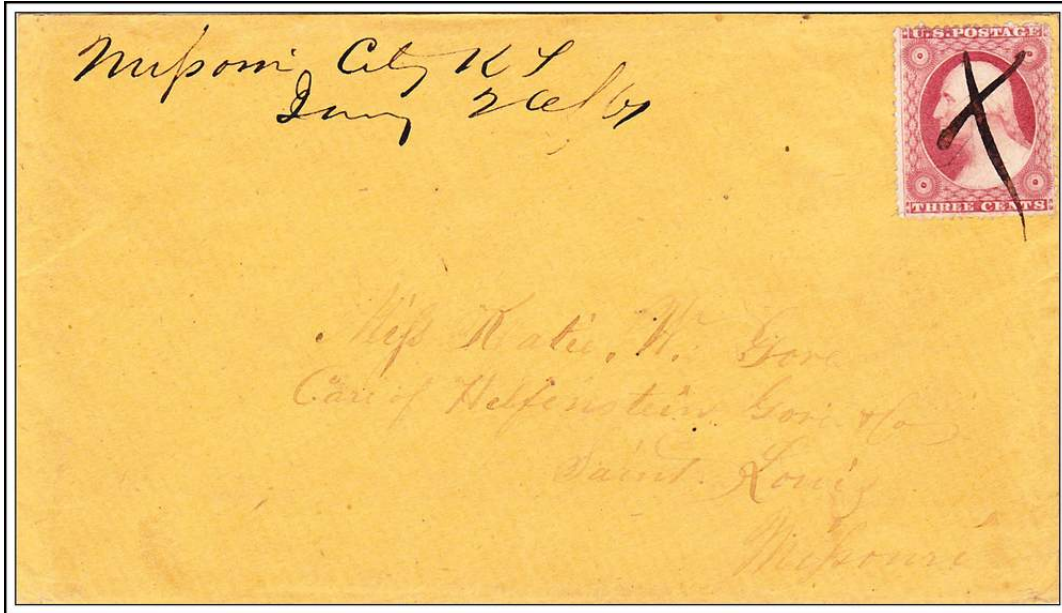 Missouri City K T
Jany 26/61
U.S. POSTAGE
THREE CENTS
Miss Katie. W. Gore
Care of Helfenstein Gore & Co
Saint Louis
Missouri